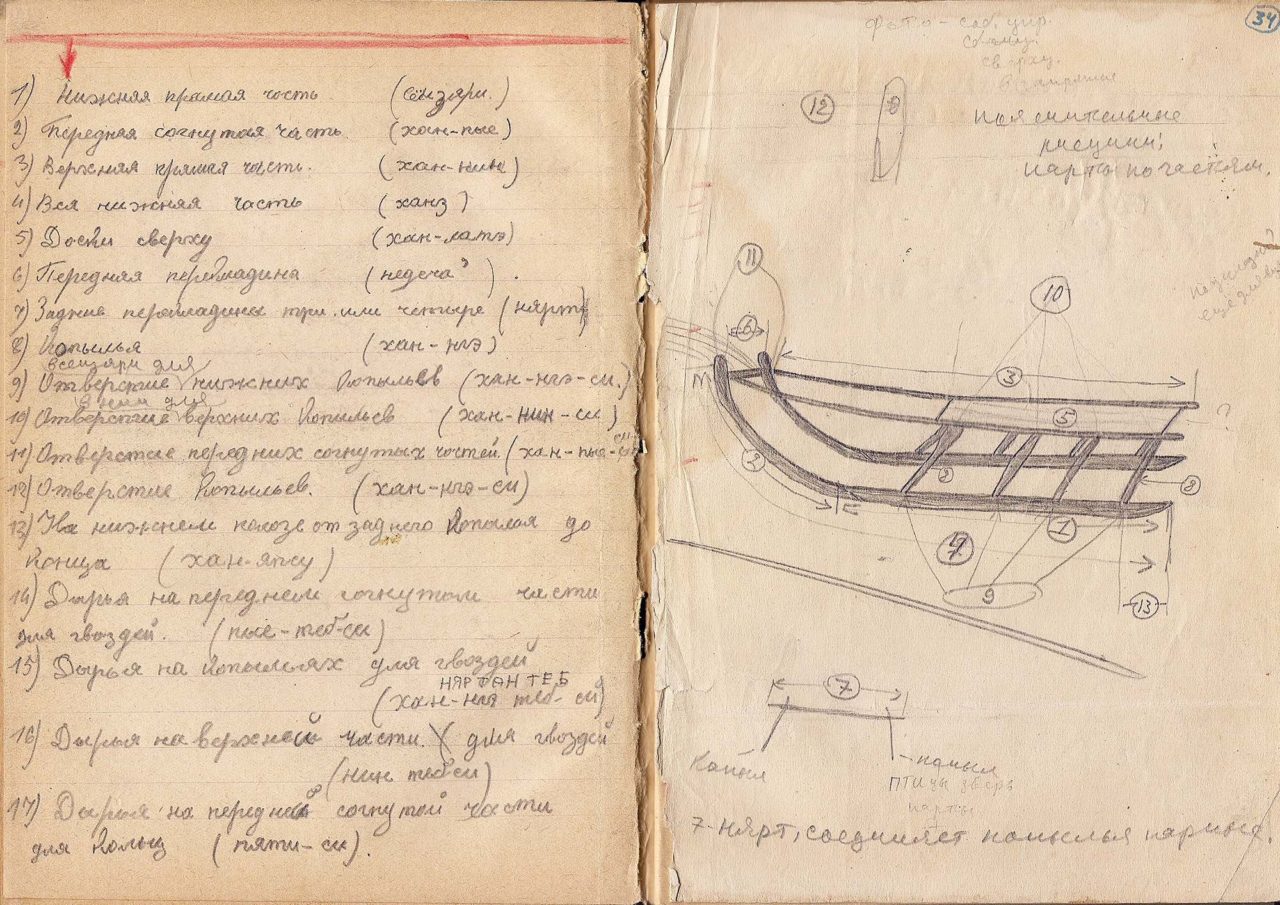 1) Нижняя прямая часть (сюзяри.)
2) Передняя согнутая часть (хан-пые)
3) Верхняя прямая часть. (хан-нин)
4) Вся нижняя часть (ханз)
5) Доски сверху (хан-латэ)
6) Передняя перекладина (недеча).
7) Задние перекладины три или четыре (нярт)
8) Копылья (хан-нгэ)
для
9) Отверстие нижних копыльев (хан-нгэ-си.)
для
10) Отверстие верхних копыльев (хан-нин-си)
11) Отверстие передних согнутых частей (хан-пые-си)
12) Отверстие копыльев. (хан-нгэ-си)
13) На нижнем полозе от заднего копылья до
конца (хан-япсу)
14) Дырья на переднем согнутом части
для гвоздей. (пые-теб-си)
15) Дырья на копыльях для гвоздей
НЯРТАН ТЕБ
(хан-нгэ теб-си)
16) Дырья на верхней части. для гвоздей
(нин теб си)
17) Дырья на передней согнутой части
для кольц (пяти-си).
34
Фото-
сверху.
12 8
рисунки;
нарты по частям.
11
10
6
3
5
2
2
8
1
4
9
13
7
копыл
птицы зверь
нарты
7-нярт, соединяет копылья нарты.